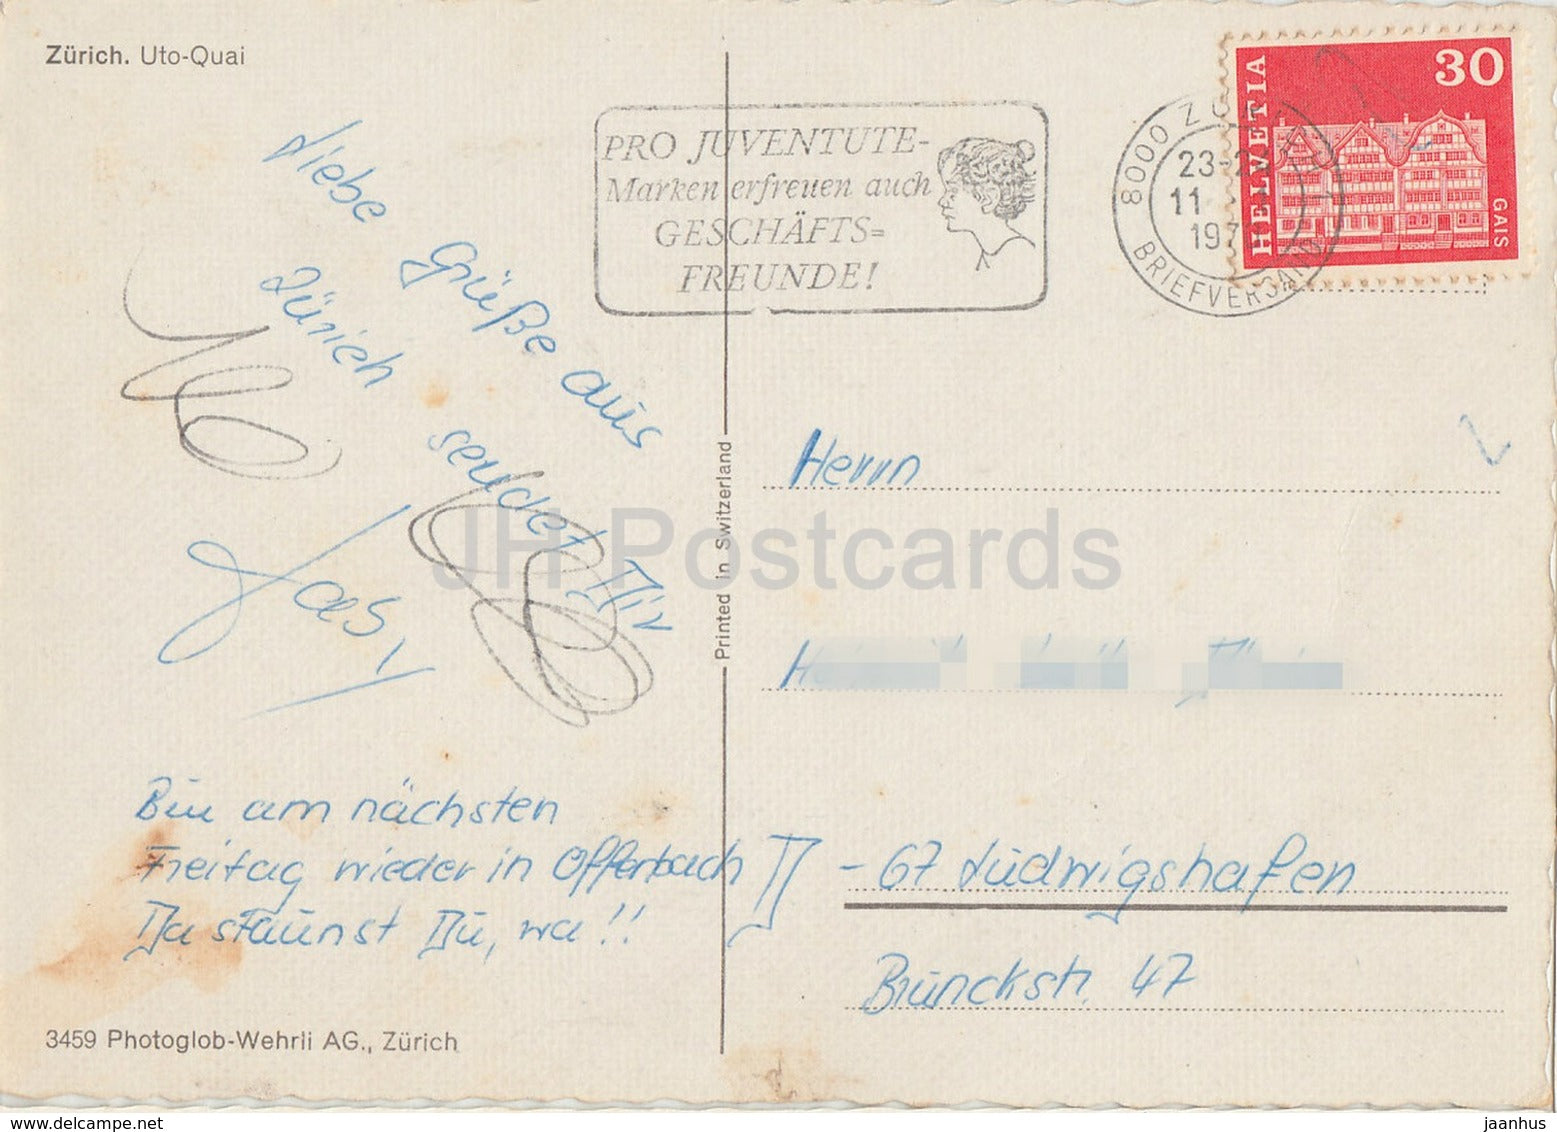 Zürich. Uto-Quai
Liebe Grüße aus
Zürich sendet Dir
Bin am nächsten
Freitag wieder in Offenbach
Da staunst Du, wa!!
3459 Photoglob-Wehrli AG., Zürich
Printed in Switzerland
PRO JUVENTUTE-
Marken erfreuen auch
GESCHÄFTS=
FREUNDE!
8000 ZÜRICH
23-
11
197
BRIEFVERSAND
HELVETIA
30
GAIS
Herrn
D - 67 Ludwigshafen
Brunckstr. 47
JH Postcards
jaanhus